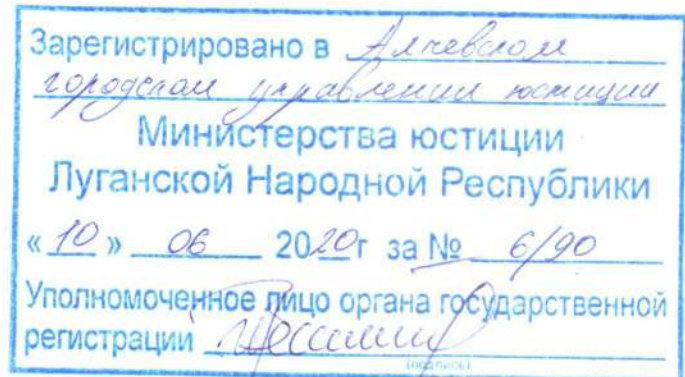 Зарегистрировано в Алчевском
городском управлении юстиции
Министерства юстиции
Луганской Народной Республики
«10» 06 2020г за № 6/90
Уполномоченное лицо органа государственной
регистрации
(подпись)